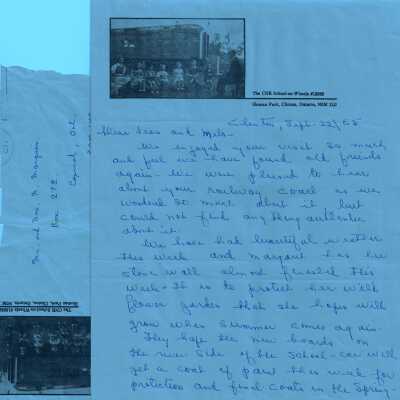 The CNR School-on-Wheels #15089
Sloman Park, Clinton, Ontario, N0M 1L0
Clinton, Sept. 22/
Dear and
We enjoyed your visit so much
and feel we have found old friends
again. We were pleased to hear
about your railway coach as we
wondered so much about it but
could not find anything authentic
about it.
We have had beautiful weather
this week and Margaret has her
stone wall almost finished this
week. It is to protect her wild
flower garden that she hopes will
grow when summer comes again.
They hope the new boards on
the river side of the School-car will
get a coat of paint this week for
protection and final coats in the Spring-
Mr. and Mrs.
Box 272
Capreol, Ont.
The CNR School-on-Wheels #15089
Sloman Park, Clinton, Ontario, N0M